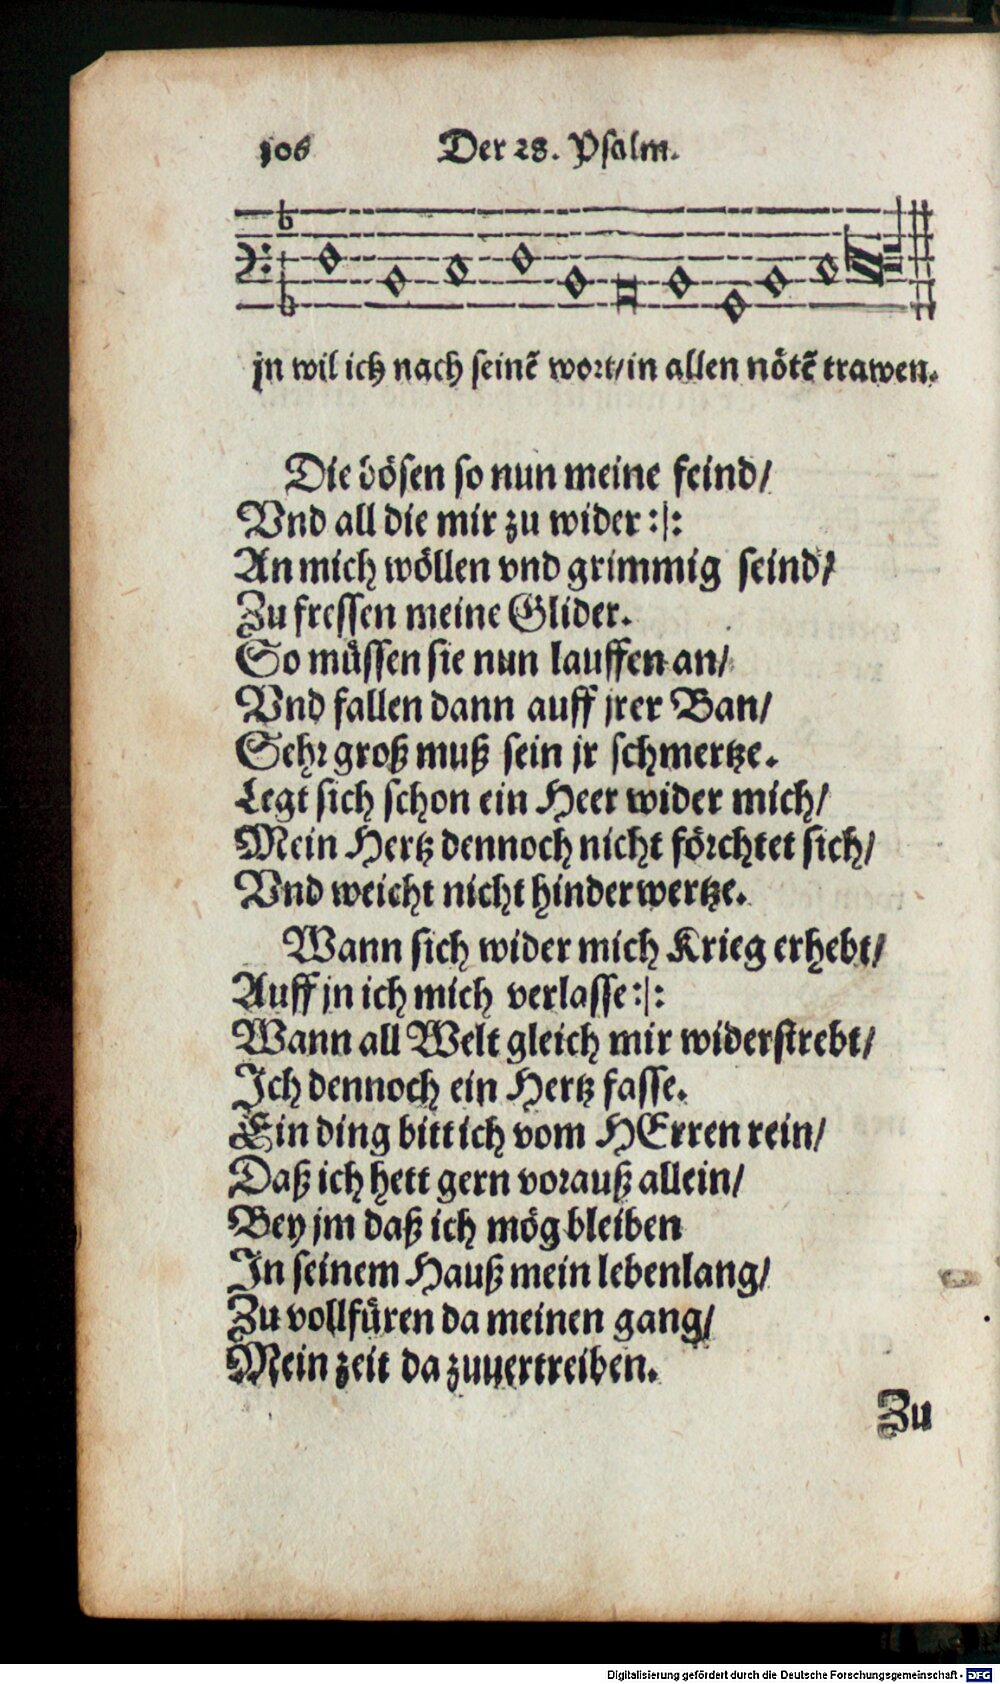 106 Der 28. Psalm.
jn wil ich nach seinẽ wort/in allen nötẽ trawen.
Die bösen so nun meine feind/
Vnd all die mir zu wider :|:
An mich wöllen vnd grimmig seind/
Zu fressen meine Glider.
So müssen sie nun lauffen an/
Vnd fallen dann auff jrer Ban/
Sehr groß muß sein jr schmertze.
Legt sich schon ein Heer wider mich/
Mein Hertz dennoch nicht förchtet sich/
Vnd weicht nicht hinderwertze.
Wann sich wider mich Krieg erhebt/
Auff jn ich mich verlasse :|:
Wann all Welt gleich mir widerstrebt/
Ich dennoch ein Hertz fasse.
Ein ding bitt ich vom HErren rein/
Daß ich hett gern vorauß allein/
Bey jm daß ich mög bleiben
In seinem Hauß mein lebenlang/
Zu vollfüren da meinen gang/
Mein zeit da zuuertreiben.
Zu
Digitalisierung gefördert durch die Deutsche Forschungsgemeinschaft - DFG